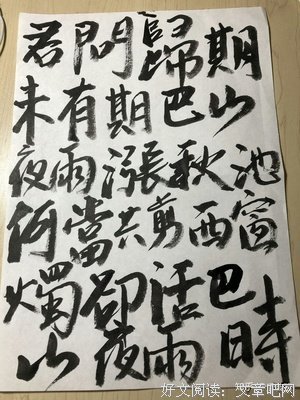 君問歸期
未有期巴山
夜雨漲秋池
何當共剪西窗
燭卻話巴
山夜雨時
好文阅读：文章吧网